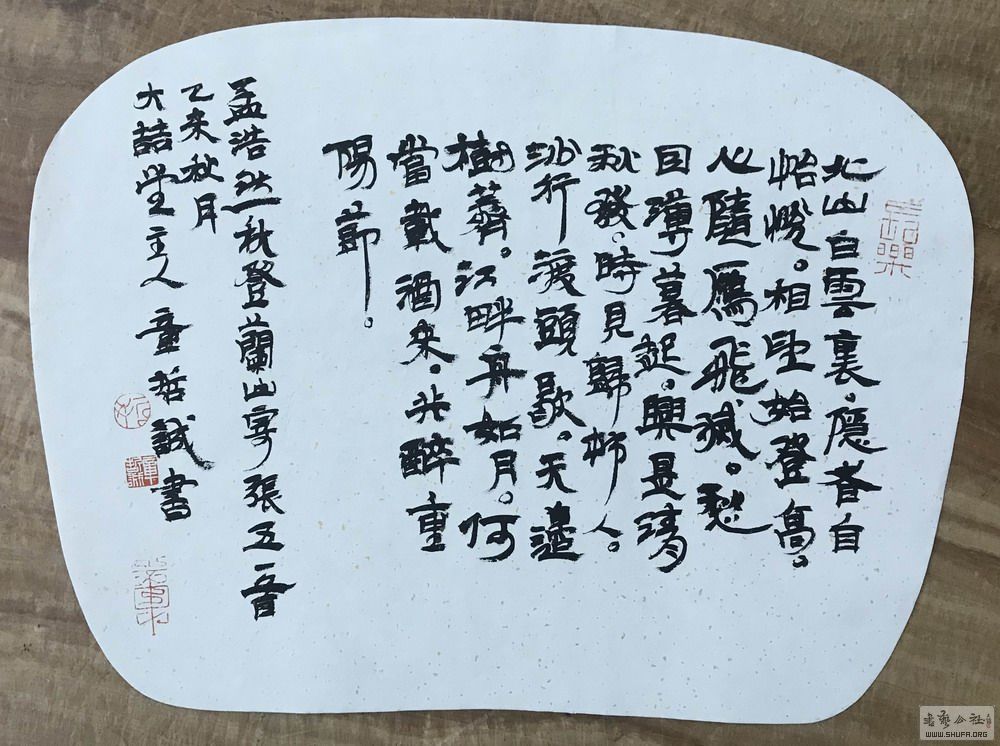 北山白雲裏。隱者自
怡悅。相望始登高。
心隨鴈飛滅。愁
因薄暮起。興是清
秋發。時見歸村人。
沙行渡頭歇。天邊
樹薺。江畔舟如月。何
當載酒來。共醉重
陽節。
孟浩然秋登蘭山寄張五一首
乙未秋月
大喆堂主人童哲誠書
WWW.SHUFA.ORG